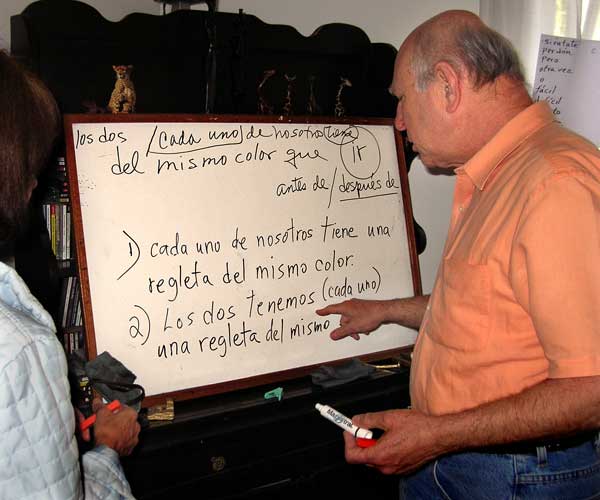 los dos / cada uno de nosotros tiene
del mismo color que ir
antes de / después de
1) cada uno de nosotros tiene una
regleta del mismo color.
2) Los dos tenemos (cada uno)
una regleta del mismo
perdón
pero
otra vez
o
fácil